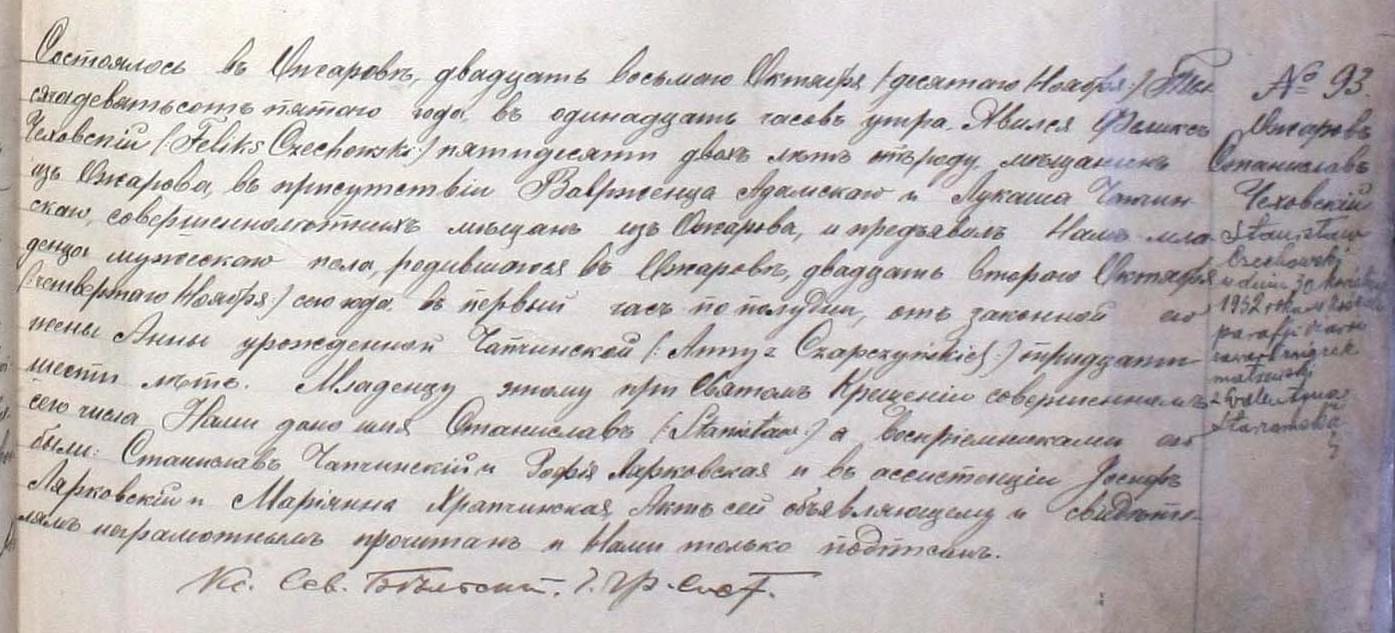 Состоялось въ Ожаровѣ, двадцать восьмаго Октября /десятаго Ноября:/ Тыс
сячадевятьсотъ пятаго года, въ одинадцать часовъ утра. Явился Феликсъ
Чеховскій /:Feliks Czechowski:/ пятидесяти двохъ лѣтъ отъ роду, мѣщанинъ
изъ Ожарова, въ присутствіи Ваврженца Адамскаго и Лукаша Чапчин
скаго, совершеннолѣтнихъ мѣщанъ изъ Ожарова, и предъявилъ Намъ мла
денца мужескаго пола, родившагося въ Ожаровѣ, двадцать втораго Октября
/:четвертаго Ноября:/ сего года въ первый часъ по полудни, отъ законной его
жены Анны урожденной Чапчинской /:Anny z Czapczyńskich:/ тридцати
шести лѣтъ. Младенцу этому при Святомъ Крещеніи совершенномъ
сего числа Нами дано имя Станиславъ /:Stanisław:/ а воспріемниками его
были: Станиславъ Чапчинскій и Зофія Ларковская и въ ассистенціи Іосифъ
Ларковскій и Маріянна Храпчинская Актъ сей объявляющему и свидѣте-
лямъ неграмотнымъ прочитанъ и Нами только подписанъ.
Кс. Сев.
№ 93.
Ожаровъ
Станиславъ
Чеховскій
Stanisław
Czechowski
w dniu 30 kwietnia
1932 roku w
parafji
zawarł związek
małżeński
z Walentyną